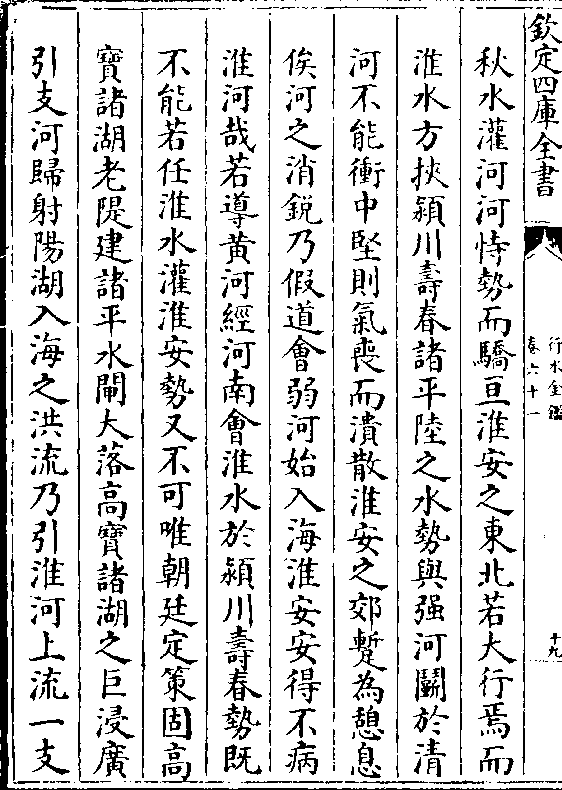 欽定四庫全書
行水金鑑
卷六十一
十九
秋水灌河河恃勢而驕亘淮安之東北若大行焉而
淮水方挾潁川壽春諸平陸之水勢與强河鬭於清
河不能衝中堅則氣喪而潰散淮安之郊蹔為憩息
俟河之消銳乃假道會弱河始入海淮安安得不病
淮河哉若導黄河經河南會淮水於潁川壽春勢既
不能若任淮水灌淮安勢又不可唯朝廷定策固高
寶諸湖老隄建諸平水閘大落高寶諸湖之巨浸廣
引支河歸射陽湖入海之洪流乃引淮河上流一支